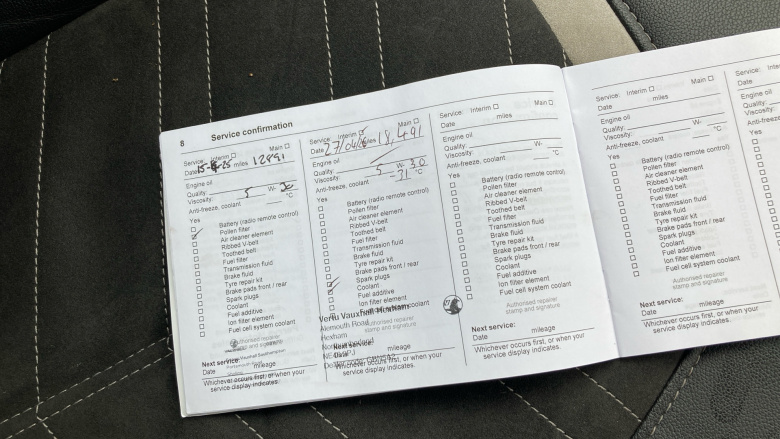 8 Service confirmation
Service: Interim ☐ Main ☐
Date 15-8-25 miles 12891
Engine oil
Quality:
Viscosity: 5 W- 30
Anti-freeze, coolant °C
Yes
☐ Battery (radio remote control)
☑ Pollen filter
☐ Air cleaner element
☐ Ribbed V-belt
☐ Toothed belt
☐ Fuel filter
☐ Transmission fluid
☐ Brake fluid
☐ Tyre repair kit
☐ Brake pads front / rear
☐ Spark plugs
☐ Coolant
☐ Fuel additive
☐ Ion filter element
☐ Fuel cell system coolant
Vauxhall Southampton
Next service:
Date mileage
Whichever occurs first, or when your
service display indicates.
Service: Interim ☑ Main ☐
Date 27/04/26 miles 18,491
Engine oil
Quality:
Viscosity: 5 W- 30
Anti-freeze, coolant -31 °C
Yes
☐ Battery (radio remote control)
☐ Pollen filter
☐ Air cleaner element
☐ Ribbed V-belt
☐ Toothed belt
☐ Fuel filter
☐ Transmission fluid
☐ Brake fluid
☐ Tyre repair kit
☐ Brake pads front / rear
☐ Spark plugs
☑ Coolant
☐ Fuel additive
☐ Ion filter element
Fuel cell system coolant
Vertu Vauxhall Hexham
Authorised repairer
stamp and signature
Alemouth Road
Hexham
Next service:
Date mileage
Whichever occurs first, or when your
service display indicates.
Service: Interim ☐ Main ☐
Date miles
Engine oil
Quality:
Viscosity: W-
Anti-freeze, coolant °C
Yes
☐ Battery (radio remote control)
☐ Pollen filter
☐ Air cleaner element
☐ Ribbed V-belt
☐ Toothed belt
☐ Fuel filter
☐ Transmission fluid
☐ Brake fluid
☐ Tyre repair kit
☐ Brake pads front / rear
☐ Spark plugs
☐ Coolant
☐ Fuel additive
☐ Ion filter element
☐ Fuel cell system coolant
Authorised repairer
stamp and signature
Next service:
Date mileage
Whichever occurs first, or when your
service display indicates.
Service: Interim ☐ Main ☐
Date miles
Engine oil
Quality:
Viscosity: W-
Anti-freeze, coolant °C
Yes
☐ Battery (radio remote control)
☐ Pollen filter
☐ Air cleaner element
☐ Ribbed V-belt
☐ Toothed belt
☐ Fuel filter
☐ Transmission fluid
☐ Brake fluid
☐ Tyre repair kit
☐ Brake pads front / rear
☐ Spark plugs
☐ Coolant
☐ Fuel additive
☐ Ion filter element
☐ Fuel cell system coolant
Authorised repairer
stamp and signature
Next service:
Date mileage
Whichever occurs first, or when your
service display indicates.
Service:
Date
Engine oil
Quality:
Viscosity:
Yes